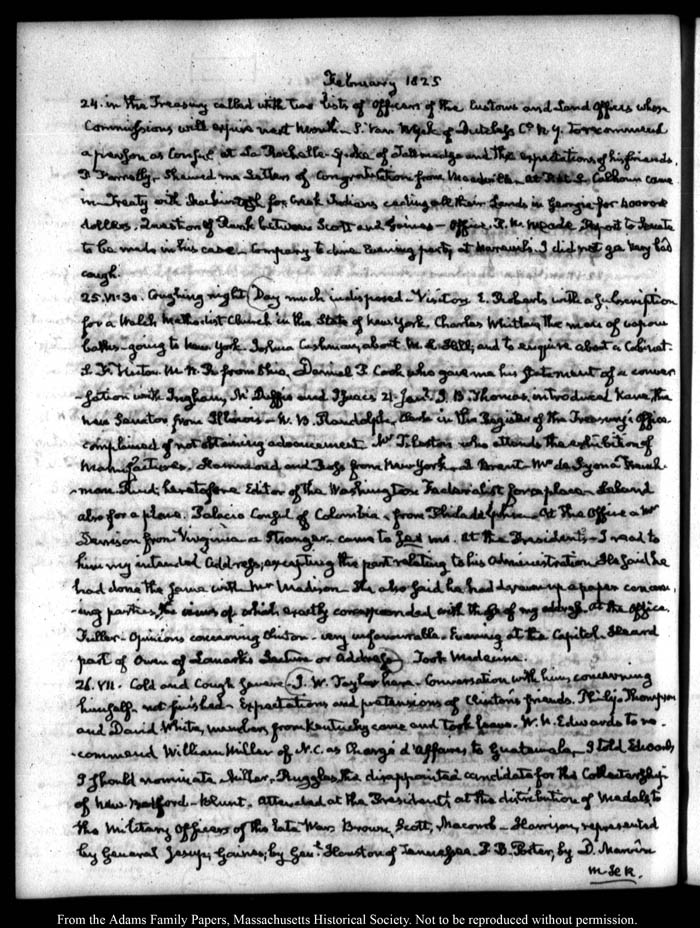 February 1825
24. in the Treasury called with two lists of Officers of the Customs and Land Offices whose
Commissions will expire next Month. P. Van Wyck of Dutchess Co. N.Y. To recommend
a person as Consul at La Rochelle. Spoke of Tallmadge and the expectations of his friends.
P. Farrelly. Shewed me Letters of Congratulation from Meadville. at Prest. Calhoun came
in Treaty with Creek Indians ceding all their Lands in Georgia for 400000
dollars. Question of Rank between Scott and Gaines. Office. R. W. Meade. Report to Senate
to be made in his case. Company to dine Evening party at I did not go. Very bad
cough.
25. VI:30. Coughing night Day much indisposed. Visitors E. Roberts with a Subscription
for a Welch Methodist Church in the State of New York. Charles Whitlaw, the man of vapour
baths going to New York. Joshua Cushman, about M. L. Hill; and to enquire about a Cabinet.
S. F. Vinton. M.H.R. from Ohio, Daniel P. Cook who gave me his Statement of a conver
-sation with Ingham, McDuffie and Isacs 21. Jany. J. B. Thomas, introduced Kane, the
new Senator from Illinois. W. B. Randolph, Clerk in the Register of the Treasury's Office
complained of not obtaining advancement. Mr. who attends the exhibition of
Manufactures. Hammond and from New York. Brent. Mr. de French-
-man. heretofore Editor of the Washington Federalist for a place. Leland
also for a place. Palacio Consul of Colombia, from Philadelphia. At the Office a Mr.
Denison from Virginia a Stranger came to see me. at the President's. I read to
him my intended Address, excepting the part relating to his Administration. He said he
had done the same with Mr. Madison. He also said he had drawn up a paper concern
-ing parties, the views of which exactly corresponded with of my address. at the Office.
Fuller. Opinions concerning Clinton very unfavourable. Evening at the Capitol. Heard
part of Owen of Lanark's Lecture or Address. Took Medicine.
26. VII. Cold and Cough severe J. W. Taylor here. Conversation with him, concerning
himself not finished. Expectations and pretensions of Clinton's friends. Phil. Thompson
and David White, members from Kentucky came and took leave. W. N. Edwards to re-
commend William Miller of N.C. as Chargé d'Affaires, to Guatemala. I told Edwards
I should nominate Miller. Ruggles, the disappointed candidate for the Collectorship
of New Bedford. Blunt. Attended at the President's, at the distribution of Medals to
the Military Officers of the late War. Brown, Scott, Macomb. Harrison, represented
by General Jesup, Gaines, by Genl. Houston of Tennessee. P. B. Porter, by D. Marvin
M.S.R.
From the Adams Family Papers, Massachusetts Historical Society. Not to be reproduced without permission.